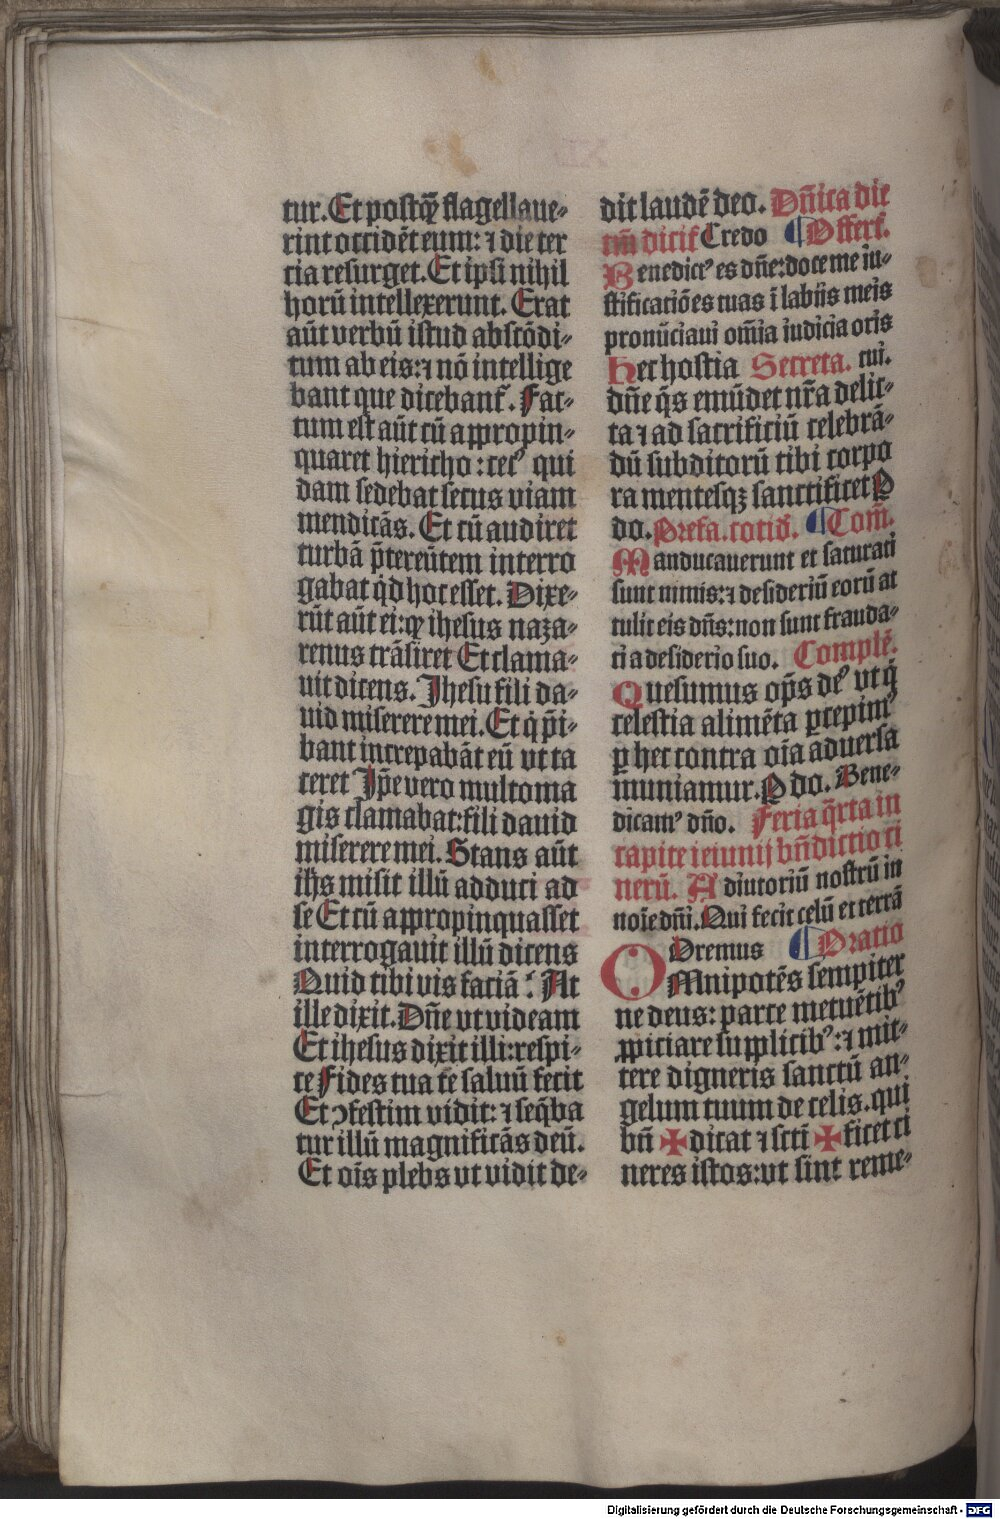 tur. Et postq̄ flagellaue-
rint occidēt eum: ⁊ die ter
cia resurget. Et ipsi nihil
horū intellexerunt. Erat
aūt verbū istud abscōdi-
tum ab eis: ⁊ nō intellige
bant que dicebant᷑. Fac-
tum est aūt cū appropin-
quaret hiericho: cecꝰ qui
dam sedebat secus viam
mendicās. Et cū audiret
turbā p̄tereūtem interro
gabat qͥd hoc esset. Dixe-
rūt aūt ei: ꝙ ihesus naza-
renus trāsiret Et clama-
uit dicens. Jhesu fili da-
uid miserere mei. Et qͥ p̄i-
bant increpabāt eū vt ta
ceret Jp̄e vero multo ma
gis clamabat: fili dauid
miserere mei. Stans aūt
ih̄s misit illū adduci ad
se Et cū appropinquasset
interrogauit illū dicens
Quid tibi vis faciā? At
ille dixit. Dn̄e vt videam
Et ihesus dixit illi: respi-
ce Fides tua te saluū fecit
Et ꝯfestim vidit: ⁊ seq̄ba
tur illū magnificās deū.
Et oīs plebs vt vidit de-
dit laudē deo. Dn̄ica die
tm̄ dicit᷑ Credo ¶ Offert᷑.
Benedictꝰ es dn̄e: doce me iu-
stificatiōes tuas ī labiis meis
pronūciaui om̄ia iudicia oris
Hec hostia Secreta. tui.
dn̄e q̄s emūdet nr̄a delic-
ta ⁊ ad sacrificiū celebrā-
dū subditorū tibi corpo
ra mentesqꝫ sanctificet P
do. Prefa. cotid̄. ¶ Com̄.
Manducauerunt et saturati
sunt nimis: ⁊ desideriū eorū at
tulit eis dn̄s: non sunt frauda-
ti a desiderio suo. Complē.
Quesumus op̄s deꝰ vt qͥ
celestia alimēta ꝑcepimꝰ
ꝑ hec contra oīa aduersa
muniamur. P do. Bene-
dicamꝰ dn̄o. Feria q̄rta in
capite ieiunij bn̄dictio ci
nerū. Adiutoriū nostrū in
noīe dn̄i. Qui fecit celū et terrā
Oremus ¶ Oratio
OMnipotēs sempiter
ne deus: parce metuētibꝰ
ꝓpiciare supplicibꝰ: ⁊ mit-
tere digneris sanctū an-
gelum tuum de celis. qui
bn̄ ✠ dicat ⁊ scti ✠ ficet ci
neres istos: vt sint reme-
Digitalisierung gefördert durch die Deutsche Forschungsgemeinschaft - DFG